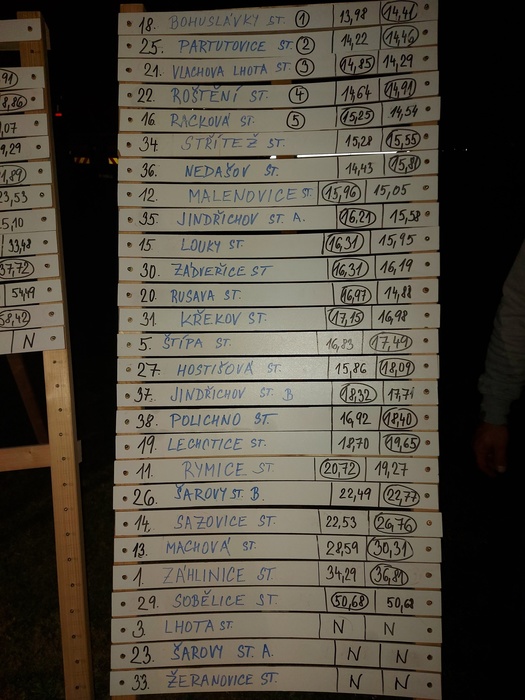 91
8,86
,07
9,29
1,89
23,53
5,10
33,48
37,72
54,49
58,42
N
18. BOHUSLÁVKY ST. 1 13,98 14,41
25. PARTUTOVICE ST. 2 14,22 14,46
21. VLACHOVA LHOTA ST. 3 14,85 14,29
22. ROŠTĚNÍ ST. 4 14,64 14,91
16 RACKOVÁ ST. 5 15,25 14,54
34 STŘÍTEŽ ST. 15,28 15,55
36. NEDAŠOV ST. 14,43 15,81
12. MALENOVICE ST. 15,96 15,05
35. JINDŘICHOV ST. A. 16,21 15,58
15 LOUKY ST. 16,31 15,95
30. ZÁDVEŘICE ST 16,31 16,19
20. RUSAVA ST. 16,97 14,88
31. KŘEKOV ST. 17,15 16,98
5. ŠTÍPA ST. 16,83 17,49
27. HOSTIŠOVÁ ST. 15,86 18,09
37. JINDŘICHOV ST. B 18,32 17,71
38. POLICHNO ST. 16,92 18,40
19. LECHOTICE ST. 18,70 19,65
11. RYMICE ST. 20,72 19,27
26. ŠAROVY ST. B. 22,49 22,77
14. SAZOVICE ST. 22,53 26,76
13. MACHOVÁ ST. 28,59 30,31
1. ZÁHLINICE ST. 34,29 36,81
29. SOBĚLICE ST. 50,68 50,62
3. LHOTA ST. N N
23. ŠAROVY ST. A. N N
33. ŽERANOVICE ST. N N